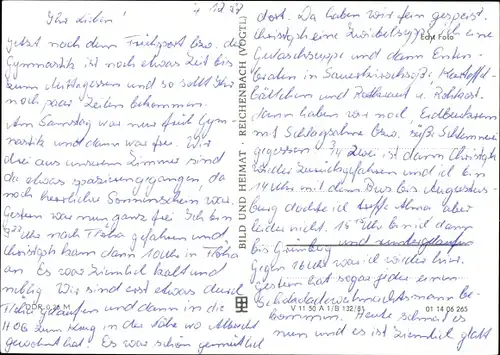 Ihr Lieben!
Jetzt nach dem Frühsport bzw. der
Gymnastik ist noch etwas Zeit bis
zum Mittagessen und so sollt Ihr
noch paar Zeilen bekommen.
Am Samstag war nur früh Gym-
nastik und dann war frei. Wir
drei aus unserem Zimmer sind
da etwas spazierengegangen, da
noch herrlicher Sonnenschein war.
Gestern war nun ganz frei. Ich bin
nach Flöha gefahren und
Christoph kam dann 10 Uhr in Flöha
an. Es war ziemlich kalt und
neblig. Wir sind erst etwas durch
Flöha gelaufen und dann in die
HOG zum Krug in der Nähe wo
gewohnt hat. Es war schön gemütlich
dort. Da haben wir fein gespeist.
Christoph eine Zwiebelsuppe, ich eine
Gulaschsuppe und dann Enten-
braten in Sauerkirschsoße, Kartoffel-
bällchen und Rotkraut u. Rohkost.
Dann haben wir noch Erdbeeren
mit Schlagsahne bzw.
gegessen. ist dann Christoph
wieder zurückgefahren und ich bin
14 Uhr mit dem Bus bis Augustus-
burg dachte ich treffe Alma aber
leider nicht. 15 15 Uhr bin ich dann
bis Grünberg und runtergelaufen
Gegen 16 Uhr war ich wieder hier.
Gestern hat sogar jeder einen
Schokoladenweihnachtsmann be-
kommen. Heute schneit es
nun und es ist ziemlich glatt
Echt Foto
BILD UND HEIMAT · REICHENBACH (VOGTL)
V 11 50 A 1/B 132/81
01 14 06 265